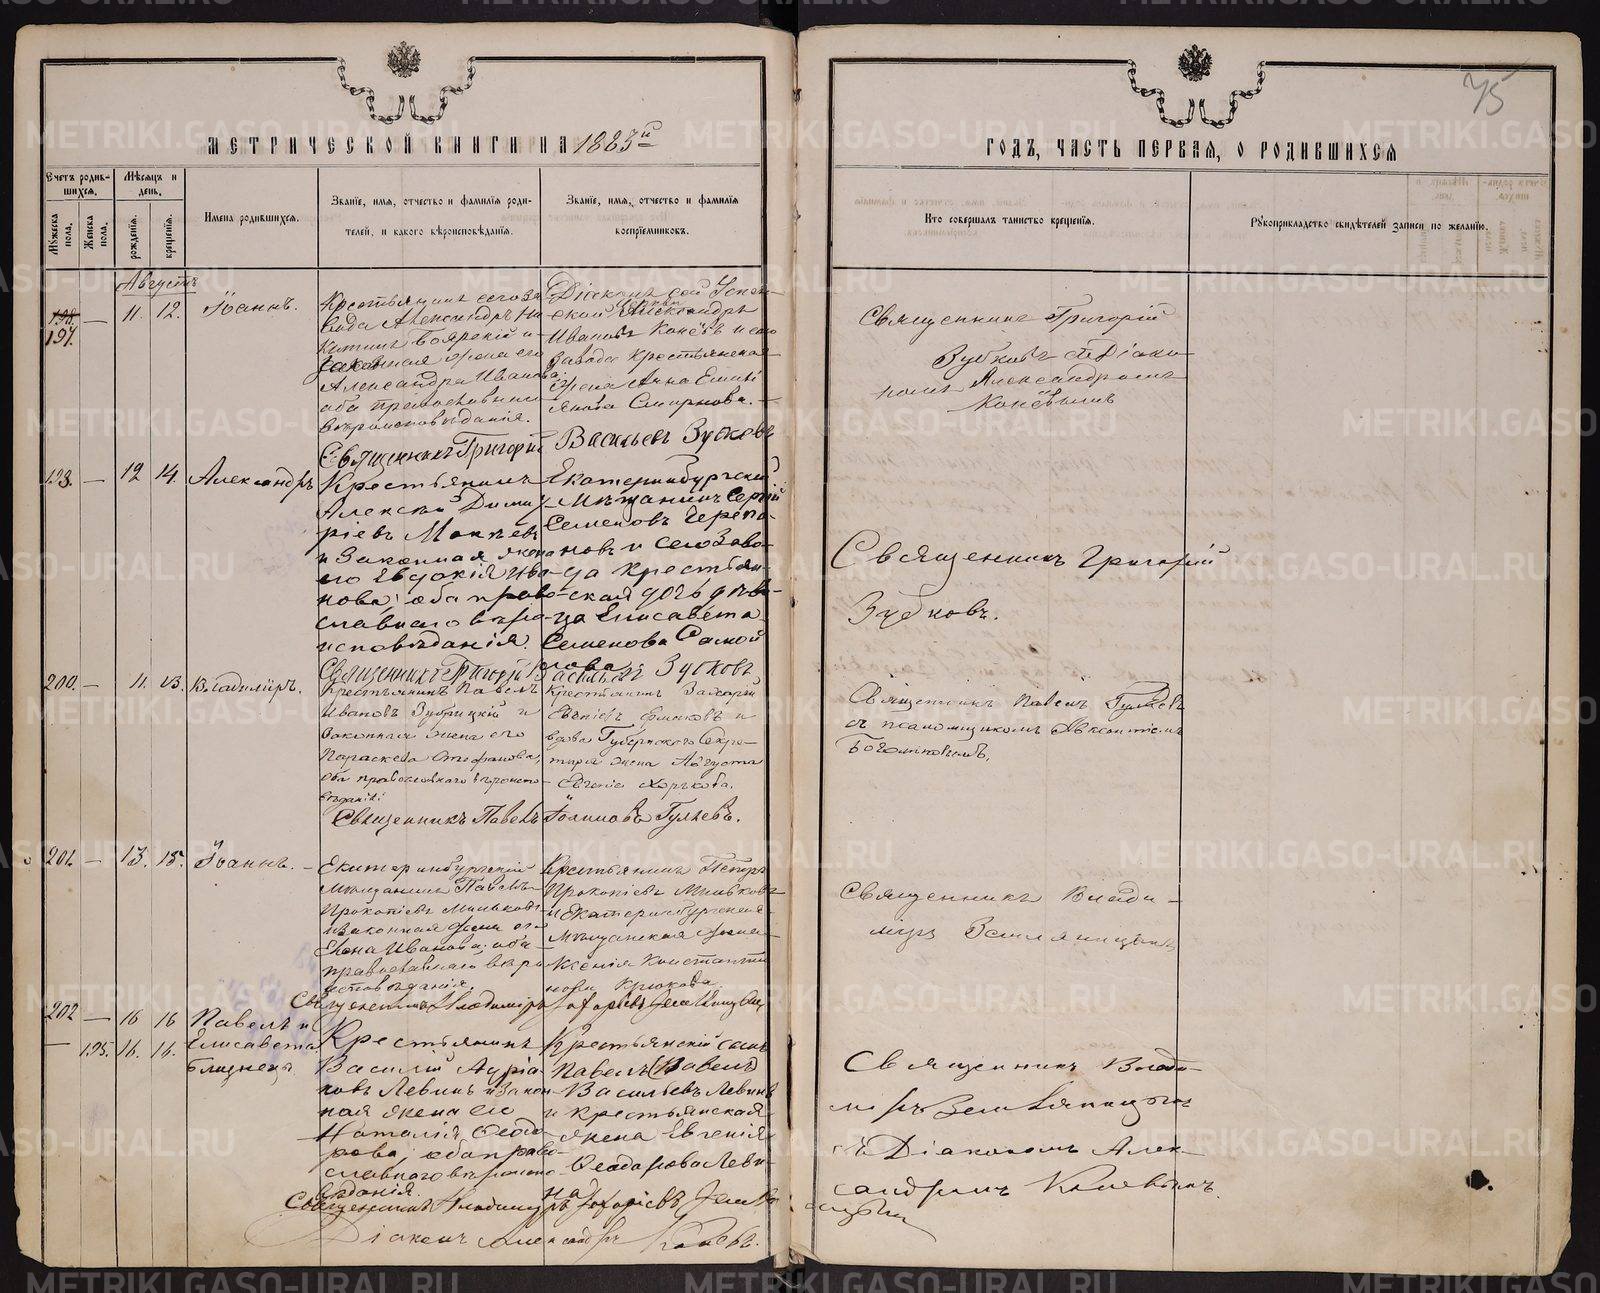 75
МЕТРИЧЕСКОЙ КНИГИ НА 1883й
ГОДЪ, ЧАСТЬ ПЕРВАЯ, О РОДИВШИХСЯ
Счетъ родив-
шихся.
Мѣсяцъ и
день.
Мужеска
пола.
Женска
пола.
рождения.
крещения.
Имена родившихся.
Званіе, имя, отчество и фамилія роди-
телей, и какого вѣроисповѣданія.
Званіе, имя, отчество и фамилія
воспріемниковъ.
Кто совершалъ таинство крещенія.
Рукоприкладство свидѣтелей записи по желанію.
Августъ
197. — 11. 12. Іоаннъ.
Крестьянинъ сего за-
вода Александръ Ни-
китинъ Боярскій и
законная жена его
Александра Иванова
оба православнаго
вѣроисповѣданія.
Діаконъ сей Успен-
ской церкви Александръ
Ивановъ Конёвъ и сего
завода Крестьянская
жена Анна Емель-
янова Смирнова.
Священникъ Григорій
Зубковъ съ Діако-
номъ Александромъ
Конёвымъ
Священникъ Григорій Васильевъ Зубковъ
— 12 14. Александръ
Крестьянинъ
Алексѣй Димит-
ріевъ Мокѣевъ
и Законная жена
его Евдокія Ива-
нова; оба право-
славнаго вѣро-
исповѣданія.
Екатеринбургскій
Мѣщанинъ Сергій
Семеновъ Черепа-
новъ и сего Заво-
да крестьян-
ская дочь дѣви-
ца Елисавета
Семенова Самой
лова
Священникъ Григорій
Зубковъ.
Священникъ Григорій Васильевъ Зубковъ
200. — 11. 13. Владиміръ.
Крестьянинъ Павелъ
Ивановъ Зубрицкій и
Законная жена его
Параскева Стефанова,
оба православнаго вѣроиспо-
вѣданія.
Крестьянинъ Захарій
и
вдова Губернскаго Секре-
таря жена Августа
Евгенія Хорькова.
Священникъ Павелъ Гуляевъ
съ псаломщикомъ Авксентіемъ
Священникъ Павелъ Іоанновъ Гуляевъ.
201. — 13. 15. Іоаннъ.
Екатеринбургскій
Мѣщанинъ Павелъ
Прокопіевъ Миньковъ
и законная жена его
Елена Иванова; оба
православнаго вѣро
исповѣданія
Крестьянинъ Петръ
Прокопіевъ Миньковъ
и Екатеринбургская
Мѣщанская жена
Ксенія Константи
нова Крюкова.
Священникъ Влади-
міръ Земляницынъ
Священникъ Владиміръ Земляницынъ
202 — 16 16 Павелъ и
— 195. 16. 16. Елисавета
близнецы
Крестьянинъ
Василій Адріа-
новъ Левинъ и закон-
ная жена его
Наталія Ѳеодо-
рова; оба право-
славнаго вѣроиспо-
вѣданія.
Крестьянскій сынъ
Павелъ (Павелъ)
Васильевъ Левинъ
и крестьянская
жена Евгенія
Ѳеодорова Леви-
на
Священникъ Влади-
міръ Земляницынъ
съ Діакономъ Алек-
сандромъ Конёвымъ.
Священникъ Владиміръ Земля
ницынъ
Діаконъ Александръ Конёвъ.
METRIKI.GASO-URAL.RU